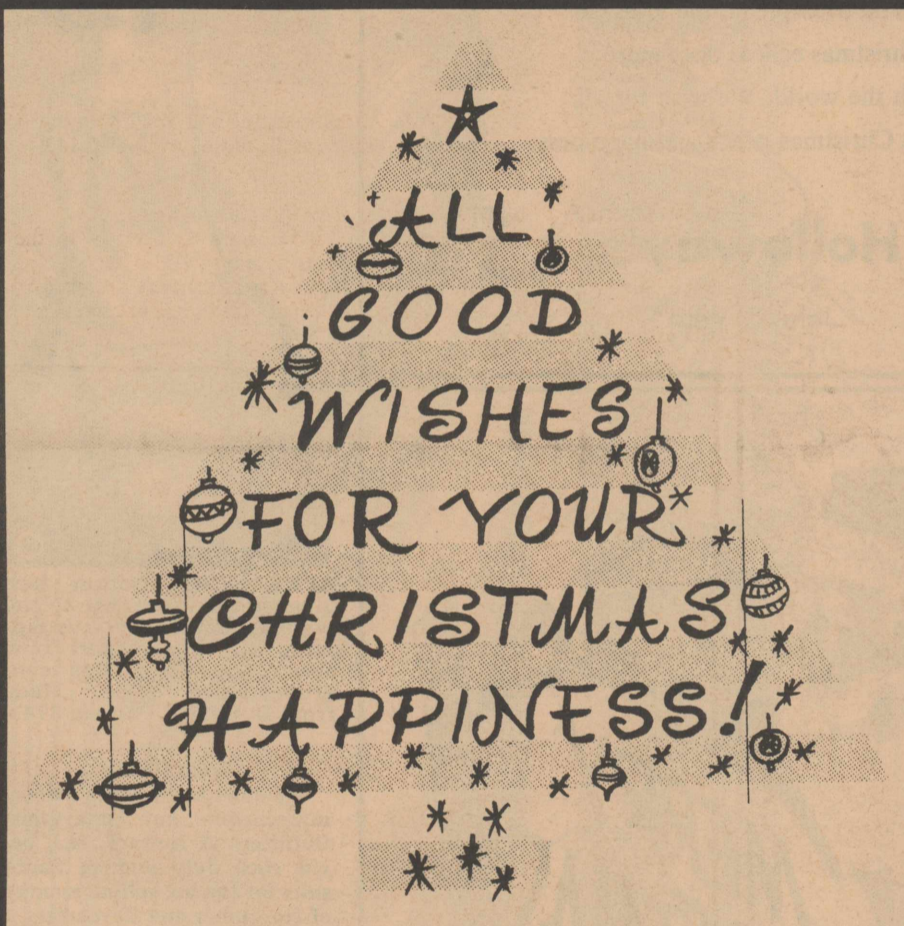 ALL
GOOD
WISHES
FOR YOUR
CHRISTMAS
HAPPINESS!